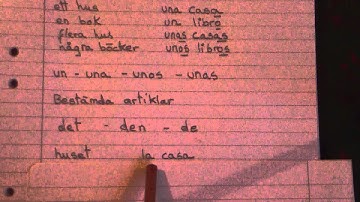 ett hus una casa
en bok un libro
flera hus unas casas
några böcker unos libros
un - una - unos - unas
Bestämda artiklar
det - den - de
huset la casa